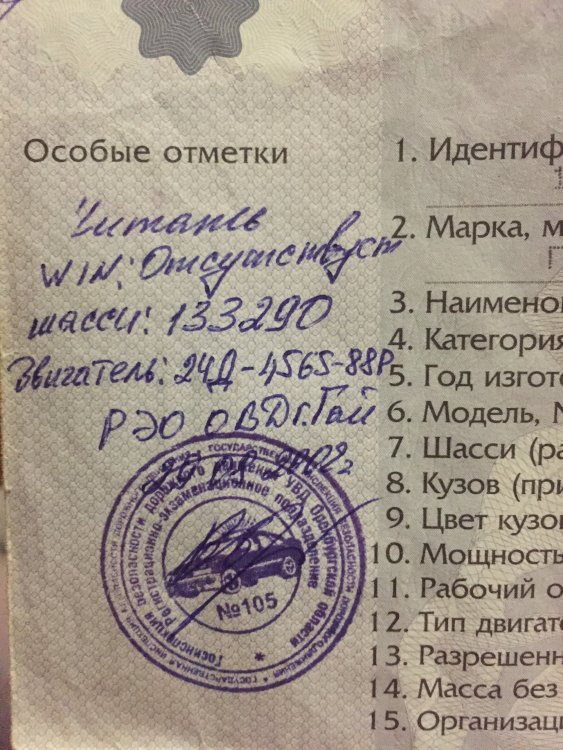 Особые отметки
Читать
WIN: Отсутствует
шасси: 133290
Двигатель: 24Д-4565-88Р
РЭО ОВД г. Гай
2002г
Госинспекция безопасности дорожного движения УВД Оренбургской области
Регистрационно-экзаменационное подразделение
№105
1. Идентиф
2. Марка, м
3. Наимено
4. Категория
5. Год изгото
6. Модель, №
7. Шасси (ра
8. Кузов (при
9. Цвет кузо
10. Мощность
11. Рабочий о
12. Тип двигате
13. Разрешенн
14. Масса без
15. Организац